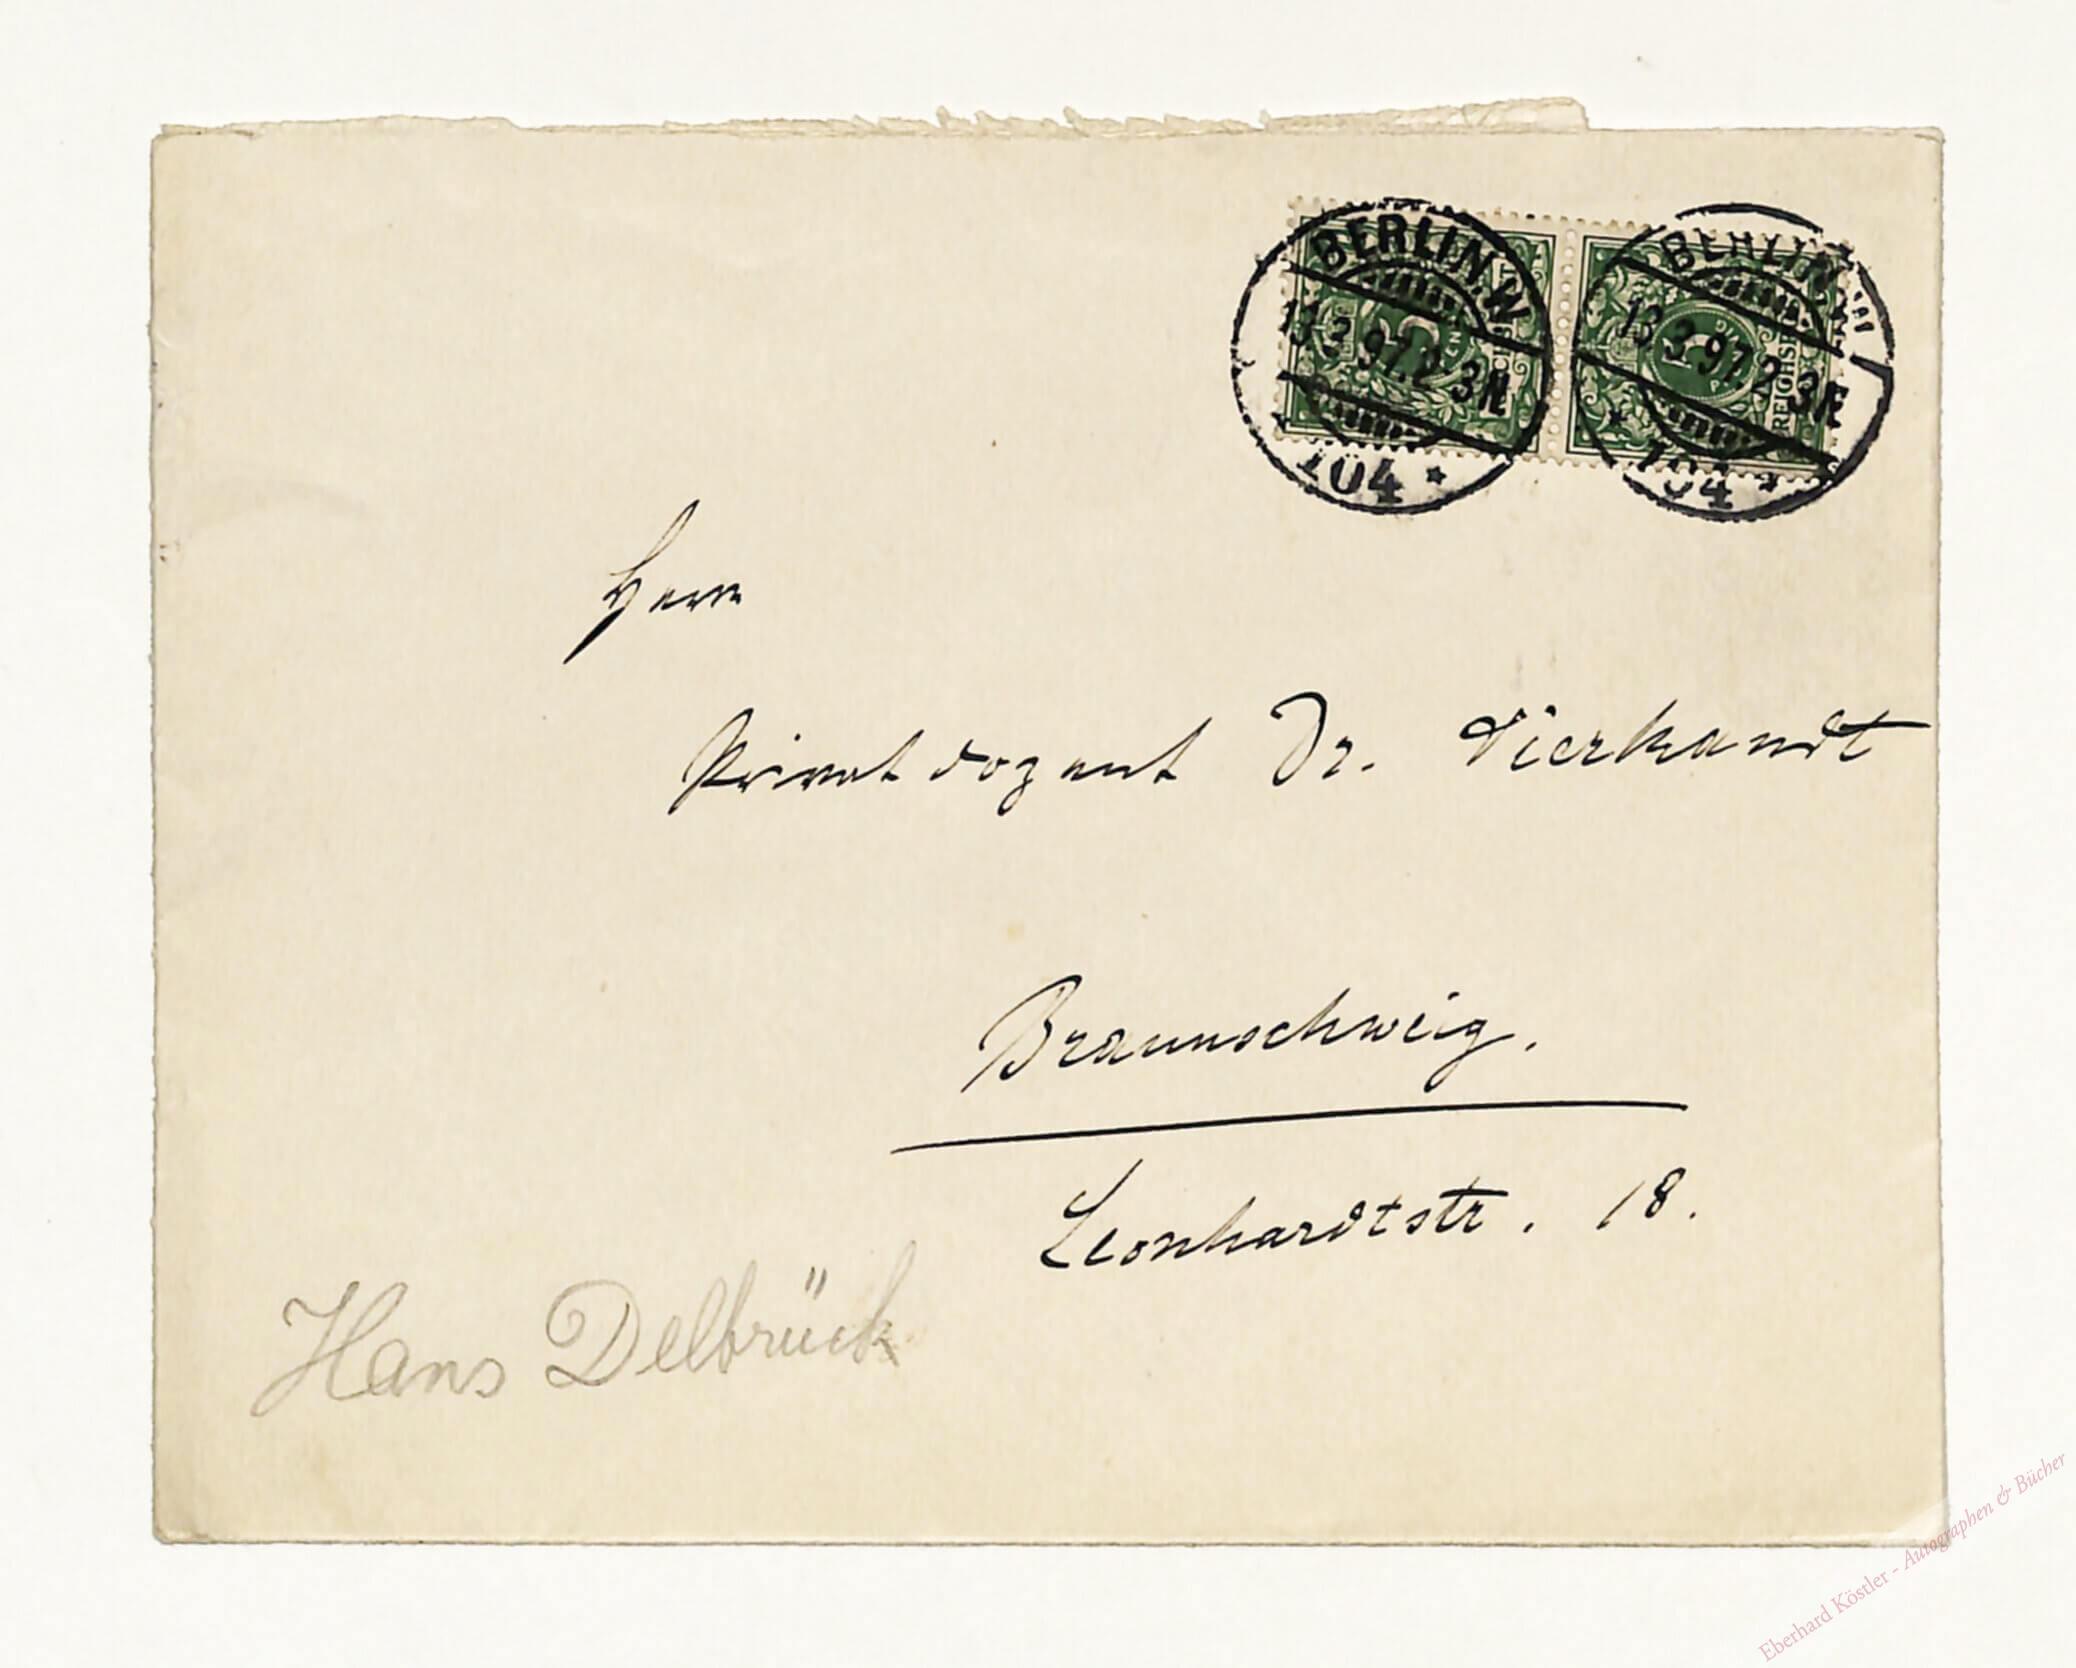 BERLIN.W.
13.3.97.2-3N.
104 *
BERLIN.W
13.3.97.2-3N.
104 *
REICHSP
Herrn
Privatdozent Dr. Vierkandt
Braunschweig.
Leonhardtstr. 18.
Hans Delbrück
Eberhard Köstler - Autographen & Bücher